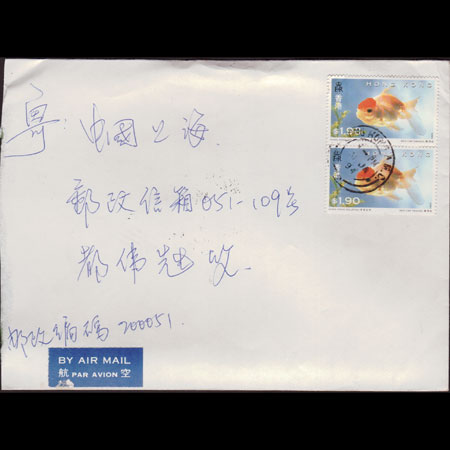 寄 中國上海
郵政信箱051-109号
郵政編碼 200051.
HONG KONG
香港
$1.90
HONG KONG
$1.90
BY AIR MAIL
航 PAR AVION 空